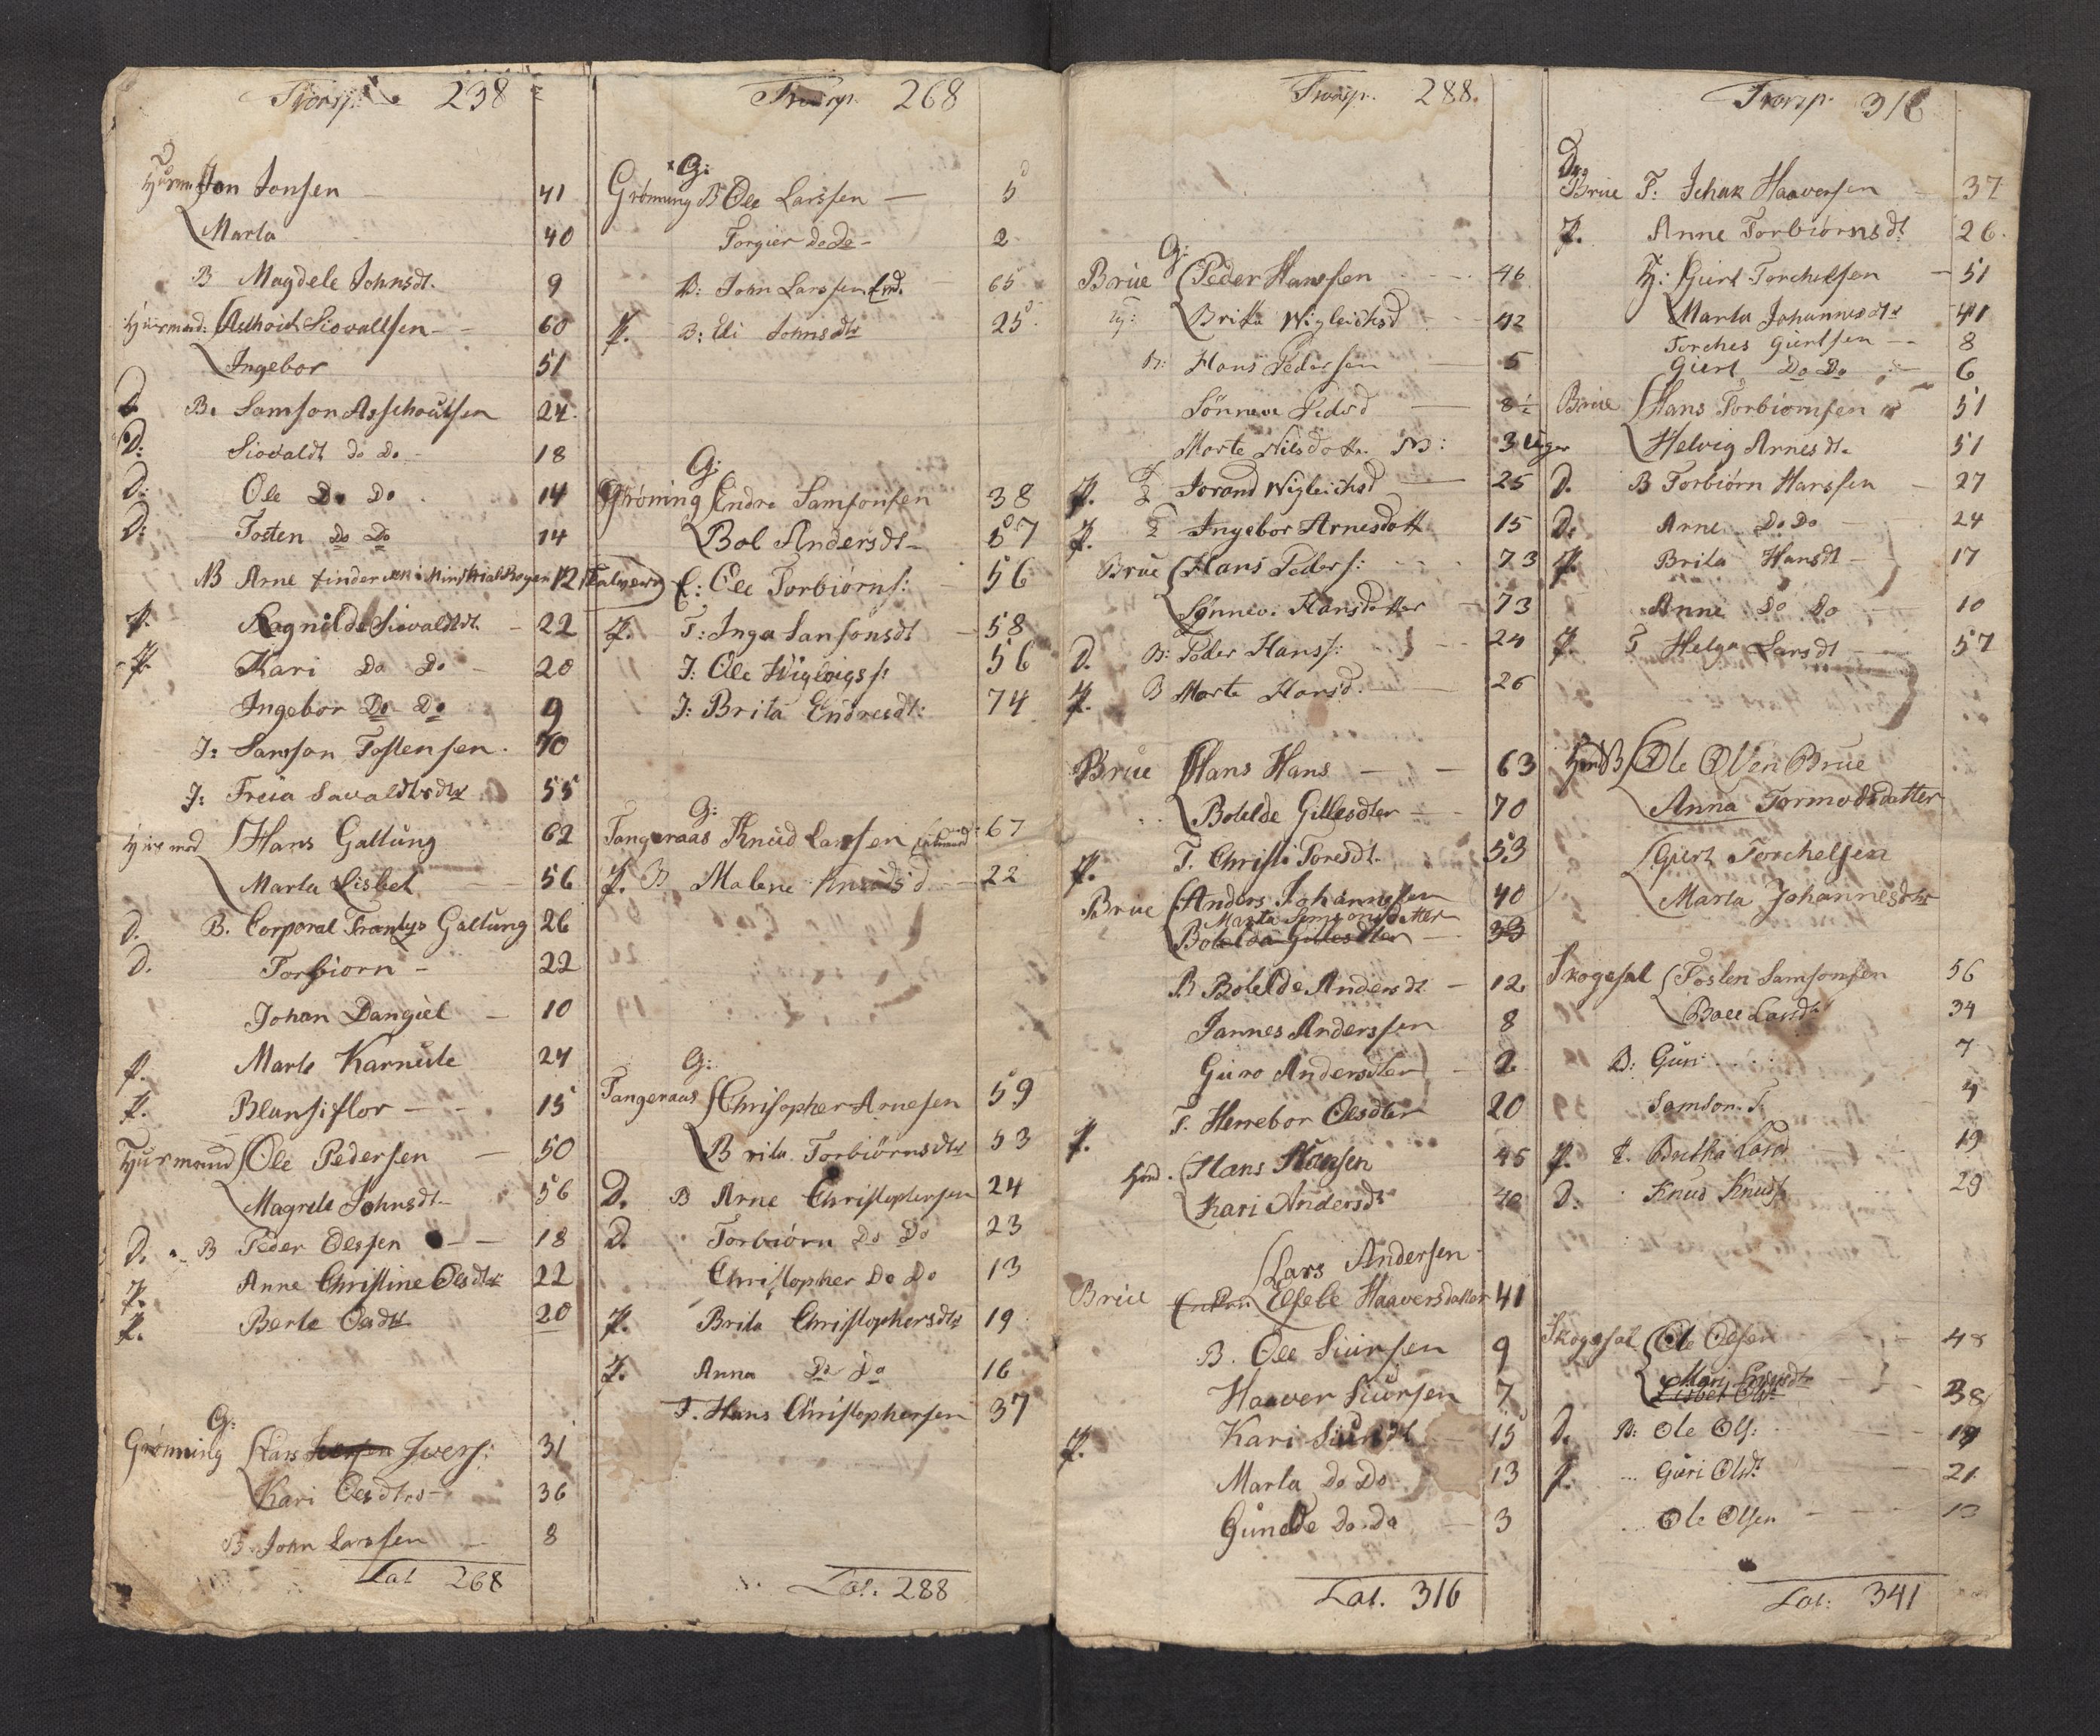 Transp. 238
Huusm. Jon Jonsen 41
Marta 40
B Magdele Johnsdt. 9
Huusmand: Asthoút Siovaltsen 60
Ingebor 51
D. B. Samson Asschoutsen 24
D: Siovaldt do Do 18
D: Ole Do Do 14
D: Tosten Do Do 14
NB Arne finder ieg i Ministrial Bogen 12
p. Ragnilde Siovaldtdt. 22
p. Kari Do Do 20
Ingebor Do Do 9
I: Samson Tostensen. 70
I: Freia Savaldtsdtr 55
Huusmed Hans Galtung 62
Marta Lisbet 56
D. B. Corporal Frantys Galtung 26
D. Torbiorn 22
Johan Dangiel 10
p. Marte Karnute 24
p. Blansiflor 15
Huusmand Ole Pedersen 50
Magrete Johnsdt 56
D. B Peder Olessen 18
p. Anne Christine Olesdtr 22
p. Berte Oesdtr 20
G:
Grønning Lars Iversen Iwers: 31
Kari Olesdtrs 36
B John Larssen 8
Lat 268
Transp. 268
G:
Grønning B Ole Larssen 5
Torgier do do 2
B: John Larssen End. 65
p. B: Eli Johnsdtr 25
G:
Grøning Endre Samsonsen 38
Bol Andersdt 57
E: Ole Torbiørns: 56
p. T: Inga Samsonsdt 58
I: Ole Wiglvigs: 56
I: Brita Endresdt: 74
G:
Tangeraas Knud Larssen 67
p. B Malene Knudsd 22
G:
Tangeraas Christopher Arnesen 59
Brita Torbiørnsdtr 53
D. B Arne Christophersen 24
D. Torbiörn Do Do 23
Christopher Do Do 13
p. Brita Christophersdtr 19
p. Anna Do Do 16
T. Hans Christophersen 37
Lat. 288
Transp. 288.
G:
Brue Peder Hanssen 46
Brita Wigleichsd 42
B: Hans Pedersen 5
Sønneve Pedsd 8
Morte Nilsdottr NB: 3 Uger
p. T Jorand Wigleichsd 25
p. T Ingebor Arnesdott 15
Brue Hans Peders: 73
Sønnev. Hansdotter 73
D. B: Peder Hanss: 24
p. B Morte Hansd. 26
Brue Hans Hans 63
Botelde Gillesdter 70
p. T. Christi Toresdt 53
Brue Anders Johannesen 40
Marta Simonsdatter
Botelda Gillesdter 33
B Botelde Andersdt 12
Jannes Anderssen 8
Guro Andersdter 2
p. T. Herrebor Olesdter 20
Hmd. Hans Hansen 45
Kari Andersdt 40
Lars Andersen
Brue Enken Elsebe Haaversdatter 41
B. Ole Siursen 9
Haaver Siursen 7
p. Kari Siursdt 15
Marta Do Do 13
Gunelde Do. Do 3
Lat. 316
Transp. 316
D.
Brue T: Ichak Haaversen 37
p. Anne Torbiørnsdt 26
H: Giert Torchelsen 51
Marta Johannesdtr 41
Torches Giertsen 8
Giert Do Do 6
Brue Hans Torbiornsen 51
Helvig Arnesdt. 51
D. B Torbiørn Hanssen 27
D. Arne Do Do 24
p. Brita Hansdt 17
Anne Do Do 10
p. T Helga Larsdt 57
Hmd B Ole Olsen Brue
Anna Tormodsdatter
Giert Torchelsen
Marta Johannesdtr
Skogesal Tosten Samsonsen 56
34
B: Guri 7
Samson T. 4
p. T. Britha Larsd 19
D. Knud Knuds 29
Skogesal Ole Olsen 48
Mari Knudsdtr
Lisbet Olsdt 38
D. B: Ole Ols: 19
p. Guri Olsdt 21
Ole Olsen 13
Lat: 341